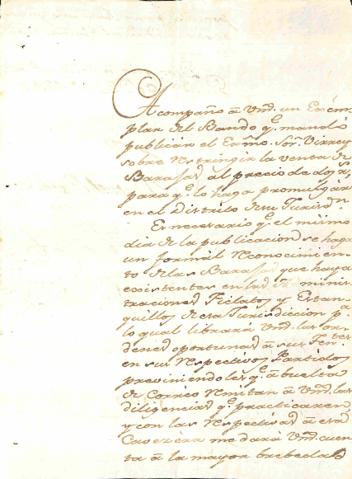 Acompaño â Vmd. un Exêm
plar del Bando q.e mandó
publicar el Exmo. Sor. Virrey
sobre restringir la venta de
Barajas al precio de dos r.s
para q.e lo haga promulgar
en el Distrito de su Jurisd.n
Es necesario q.e el mismo
dia de la publicacion se haga
un formal reconocimien
to de las Barajas que haya
existentes en las Adminis
traciones, Fielatos y Estan
quillos de esa Jurisdiccion p.r
lo qual librará Vmd. las or
denes oportunas â sus Ten.tes
en sus respectivos Partidos
previniendoles q.e â buelta
de Correo remitan â Vmd. las
diligencias q.e practicaren
y con las respectivas â esa
Cavezera me dará Vmd. cuen
ta â la mayor brebedad